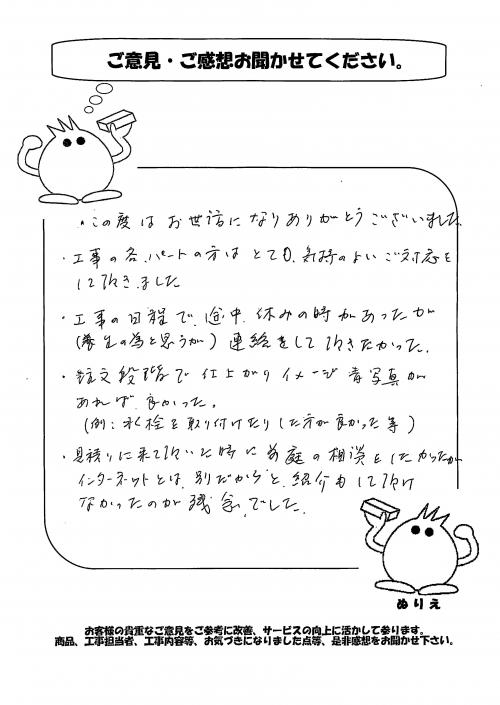 ご意見・ご感想お聞かせてください。
・この度は お世話になりありがとうございました
・工事の各パートの方は とても、気持のよい ご対応を
して頂きました
・工事の日程で、途中、休みの時があったが
(養生の為と思うが) 連絡をして頂きたかった。
・注文段階で 仕上がりイメージ 青写真が
あれば 良かった。
(例:水栓を取り付けたりした方が良かった等)
・見積りに来て頂いた時に 前庭の相談をしたかったが
インターネットとは 別だからと、紹介もして頂け
なかったのが残念でした。
ぬりえ
お客様の貴重なご意見をご参考に改善、サービスの向上に活かして参ります。
商品、工事担当者、工事内容等、お気づきになりました点等、是非感想をお聞かせ下さい。